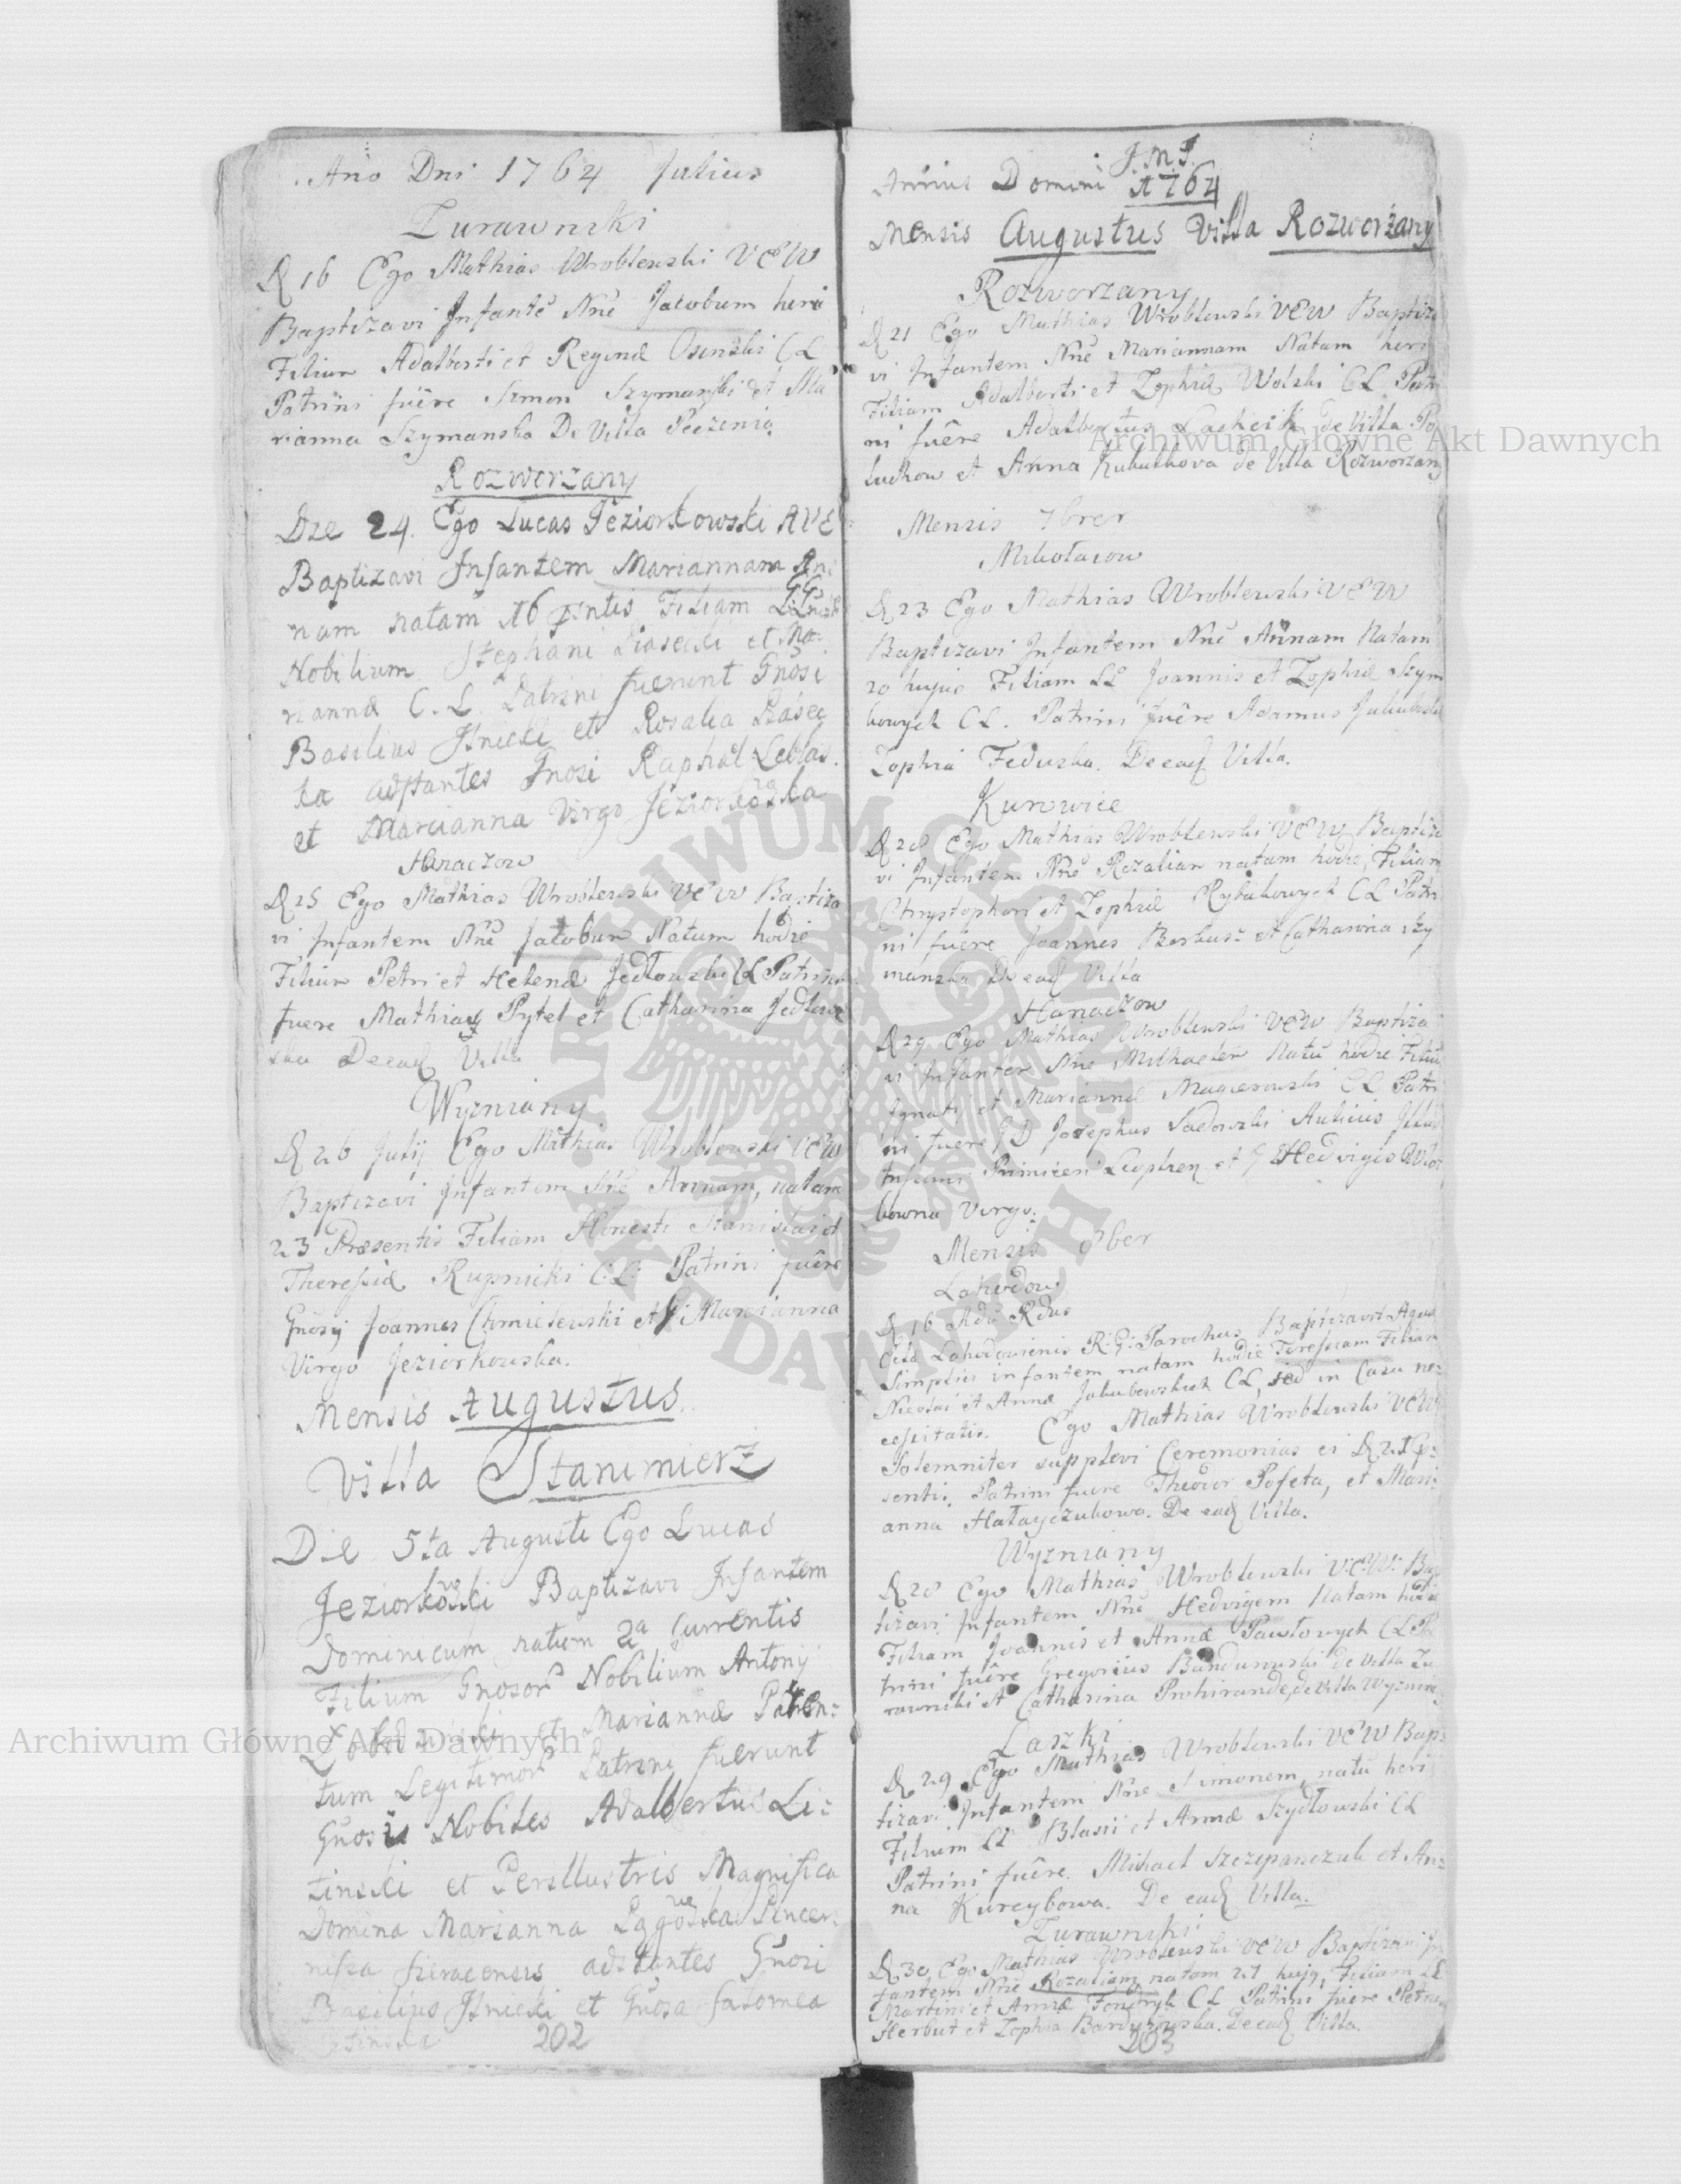 Año Dni 1764 Julius
Zurawniki
D 16 Ego Mathias Wroblewski VEW
Baptizavi Infantē Nñe Jacobum heri
Filium Adalberti et Reginæ Osinski CL
Patrini fuêre Simon Szymański et Ma
rianna Szymanska De Villa Peczenia
Rozworzany
Die 24. Ego Lucas Jeziorkowski AVE
Baptizavi Infantem Mariannam An
nam natam 16 psntis Filiam GG
Nobilium Stephani Piasecki et Ma
riannæ C. L. Patrini fuerunt Gnosi
Basilius Ilnicki et Rosalia Piasec
ka adstantes Gnosi Raphäl
et Marianna Virgo Jeziorkowska
Hanaczow
D 25 Ego Mathias Wroblewski VEW Baptiza
vi Infantem Nñe Jacobum Natum hodie
Filium Petri et Helenæ Jedlowski CL Patrini
fuere Mathias Pytel et Catharina Jedlow
ska De ead Villa
Wyzniany
D 26 Julij Ego Mathias Wroblewski VEW
Baptizavi Infantem Nñe Annam, natam
23 Præsentis Filiam Honesti Stanislai et
Theressiæ Rupnicki C:L: Patrini fuêre
Gnosij Joannes Chmielewski et Marianna
Virgo Jeziorkowska.
Mensis Augustus
Villa Stanimierz
Die 5ta Augusti Ego Lucas
Jeziorkowski Baptizavi Infantem
Dominicum natum 2a Currentis
Filium Gnosor Nobilium Antonij
et Mariannæ Paren:
tum Legitimor Patrini fuerunt
Gnosi Nobiles Adalbertus Li:
tinski et Perillustris Magnifica
Domina Marianna Łągowska Pincer
nissa Sieracensis adstantes Gnosi
Basilius Ilnicki et Gnosa Salomea
202
J.M.J.
Annus Domini 1764
Mensis Augustus Villa Rozworzany
Rozworzany
D 21 Ego Mathias Wroblewski VEW Baptiza
vi Infantem Nñe Mariannam Natam heri
Filiam Adalberti et Zophiæ Wolski CL Patri
ni fuêre Adalbertus de Villa Po
luchow et Anna Kubuchova de Villa Rozworzany
Mensis 7brer
Mikołaiow
D 23 Ego Mathias Wroblewski VEW
Baptizavi Infantem Nñe Annam Natam
20 hujus Filiam LL Joannis et Zophiæ Szym
kowych CL. Patrini fuêre Adamus Jakubski
Zophia Feduska. De ead Villa.
Kurowice
D 28 Ego Mathias Wroblewski VEW Baptiza
vi Infantem Nñe Rozaliam natam hodie, Filiam
Chrystophori et Zophiæ Rybakowych CL Patri
ni fuêre Joannes et Catharina Szy
manska De ead Villa
Hanaczow
D 29 Ego Mathias Wroblewski VEW Baptiza
vi Infantem Nñe Michaelem Natū hodie Filiū
Ignatij et Mariannæ CL Patri
ni fuêre Josephus Sadowski Aulicus
et Hedvigis
bowna Virgo.
Mensis 8ber
Lahodow
D 16 Adm Rdus
Eccl Lahodoviensis R:G: Parochus Baptizavit Aqua
Simplici infantem natam hodie Teressiam Filiam
Nicolai et Annæ Jakubowskich CL, sed in Casu ne:
cessitatis. Ego Mathias Wroblewski VEW
Solemniter supplevi Ceremonias ei D 21 Præ:
sentis. Patrini fuere Theodor Pofeta, et Mari:
anna Hałayczukowa. De ead Villa.
Wyzniany
D 28 Ego Mathias Wroblewski VEW: Bap
tizavi Infantem Nñe Hedvigem Natam hodie
Filiam Joannis et Annæ Pawłowych CL Pa
trini fuêre Gregorius de Villa Zu
rawniki et Catharina de Villa Wyzniany
Laszki
D 29 Ego Mathias Wroblewski VEW Bap:
tizavi Infantem Nñe Simonem, natū heri
Filium LL Blasii et Annæ Szydłowski CL
Patrini fuêre Michael Szczepanczuk et An:
na Kurcybowa. De ead Villa.
Zurawniki
D 30 Ego Mathias Wroblewski VEW Baptizavi In
fantem Nñe Rozaliam natam 27 hujg, Filiam LL
Martini et Annæ CL Patrini fuere Petrus
Herbut et Zophia De ead Villa.
203
Archiwum Główne Akt Dawnych
Archiwum Główne Akt Dawnych
ARCHIWUM GŁÓWNE AKT DAWNYCH